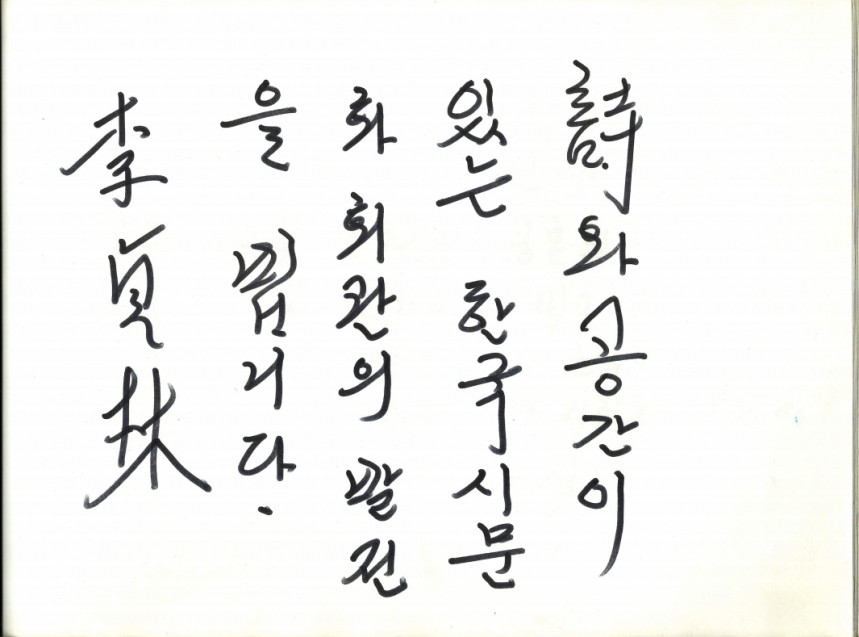 詩와 공간이
있는 한국시문
화 회관의 발전
을 빕니다.
李貞林